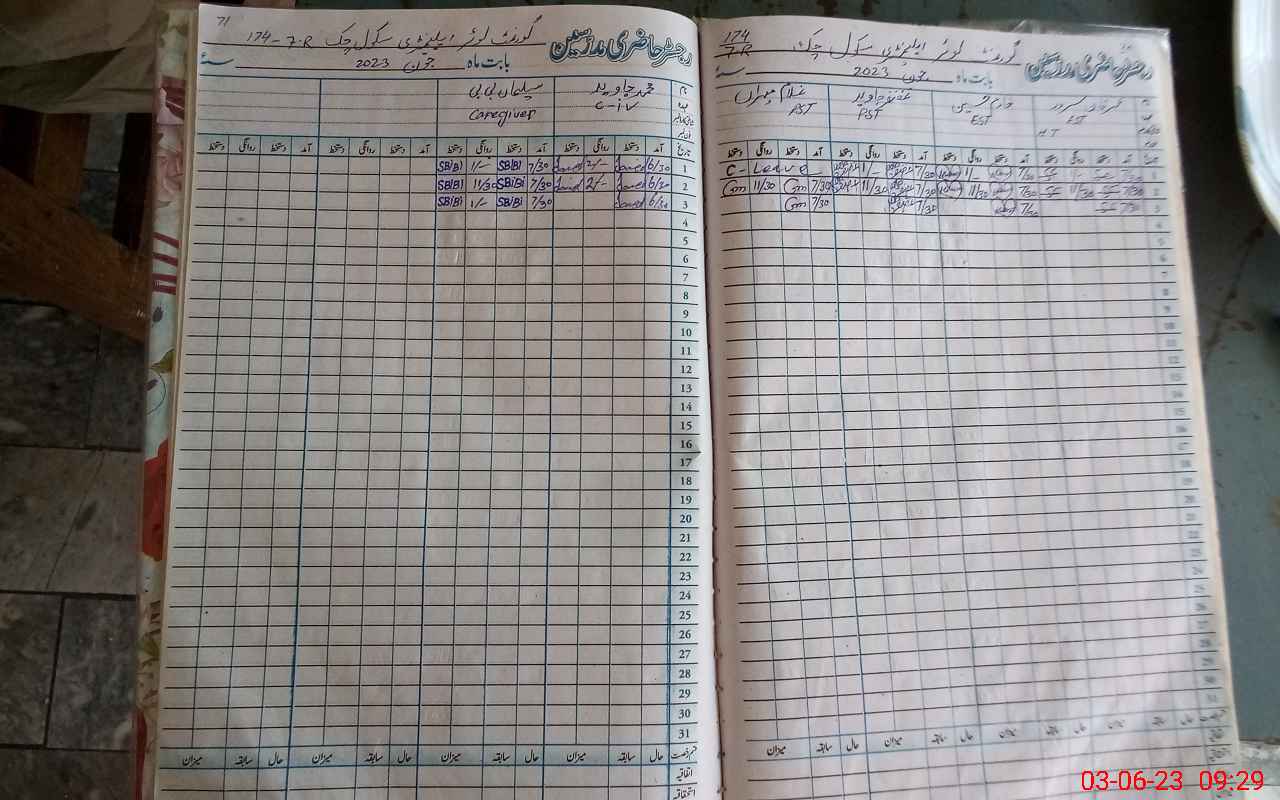 174
7-R
گورنمنٹ لوئر ایلیمنٹری سکول چک
رجسٹر حاضری مدرسین
بابت ماہ جون 2023 سنہ
غلام
PST
جاوید
PST
EST
EST
H T
تاریخ آمد دستخط روانگی دستخط آمد دستخط روانگی دستخط آمد دستخط روانگی دستخط آمد دستخط روانگی دستخط
1 7/30 1/- 7/30 1/- 7/30 1/- C-Leave
2 7/30 11/30 7/30 11/30 7/30 11/30 7/30 Gm 11/30 Gm
3 7/30 7/30 7/30 7/30 Gm
4
5
6
7
8
9
10
11
12
13
14
15
16
17
18
19
20
21
22
23
24
25
26
27
28
29
30
31
حال سابقہ میزان حال سابقہ میزان حال سابقہ میزان حال سابقہ میزان
71
گورنمنٹ لوئر ایلیمنٹری سکول چک 174-7-R
رجسٹر حاضری مدرسین
بابت ماہ جون 2023 سنہ
محمد جاوید
C-iv
بی بی
Caregiver
تاریخ آمد دستخط روانگی دستخط آمد دستخط روانگی دستخط آمد دستخط روانگی دستخط آمد دستخط روانگی دستخط
1 6/30 Javed 2/- Javed 7/30 SBiBi 1/- SBiBi
2 6/30 Javed 2/- Javed 7/30 SBiBi 11/30 SBiBi
3 6/30 Javed 7/30 SBiBi 1/- SBiBi
4
5
6
7
8
9
10
11
12
13
14
15
16
17
18
19
20
21
22
23
24
25
26
27
28
29
30
31
قسم رخصت حال سابقہ میزان حال سابقہ میزان حال سابقہ میزان حال سابقہ میزان
اتفاقیہ
استحقاقیہ
03-06-23 09:29